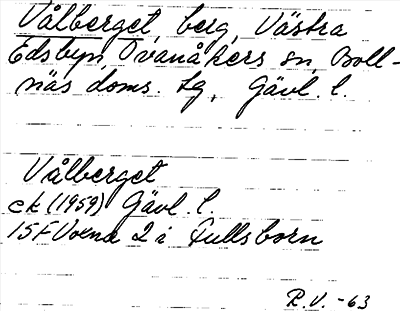 Vålberget, berg, Västra
Edsbyn, Ovanåkers sn, Boll-
näs doms. tg, Gävl. l.
Vålberget
ek (1959) Gävl. l.
15F Voxna 2 i Fullsborn
R.V. -63